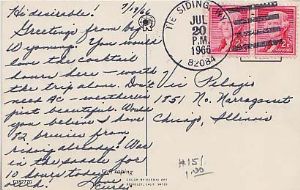 7/19/66
Hi desirable!
Greetings from big
Wyoming! You would
love the cocktail
hours here - worth
the trip alone. Don't
need AC - weather
just beautiful. Would
you believe I have
32 bruises from
riding already! Was
in the saddle for
10 hours today
Love,
TIE SIDING
JUL
20
P.M.
1966
82084
1851 No. Narragansett
Chicago, Illinois
#151